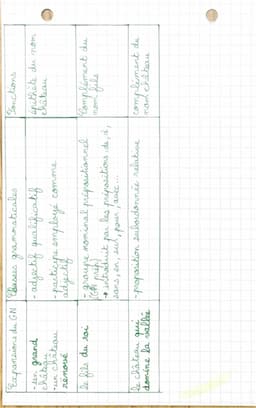 Expansions du GN
Classes grammaticales
Fonctions
- un grand
château
- un château
rénové
- adjectif qualificatif
- participe employé comme
adjectif
épithète du nom
château
le fils du roi
- groupe nominal prépositionnel
(GN prép)
→ introduit par les prépositions de, à,
sans, en, sur, pour, avec...
complément du
nom fils
le château qui
domine la vallée
- proposition subordonnée relative
complément du
nom château